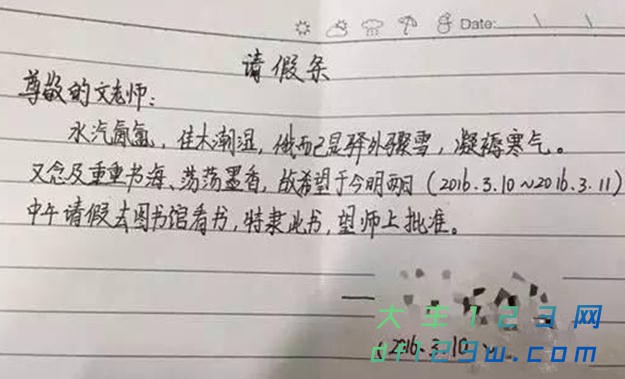 Date: \ \
请假条
尊敬的文老师:
水汽氤氲,佳木潮湿,俄而已显驿外骤雪,凝褥寒气。
又念及重重书海、荡荡墨香,故希望于今明两日(2016.3.10~2016.3.11)
中午请假去图书馆看书,特隶此书,望师上批准。
大生123网
2016.3.10